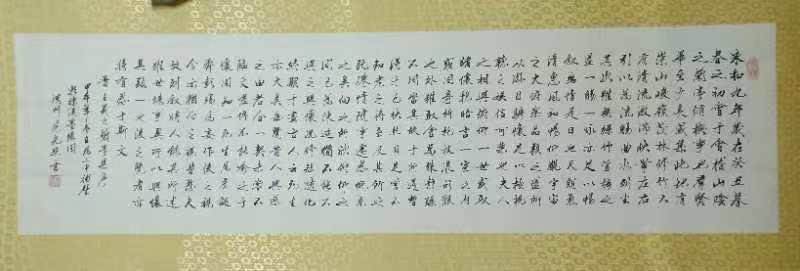 永和九年歲在癸丑暮
春之初會于會稽山陰
之蘭亭脩禊事也群賢
畢至少長咸集此地有
崇山峻嶺茂林修竹又
有清流激湍映帶左右
引以為流觴曲水列坐
其次雖無絲竹管絃之
盛一觴一詠亦足以暢
敘幽情是日也天朗氣
清惠風和暢仰觀宇宙
之大俯察品類之盛所
以遊目騁懷足以極視
聽之娛信可樂也夫人
之相與俯仰一世或取
諸懷抱晤言一室之內
或因寄所託放浪形骸
之外雖取舍萬殊靜躁
不同當其欣于所遇暫
得于己快然自足不
知老之將至及其所之
既倦情隨事遷感慨係
之矣向之所欣俯仰之
間已為陳迹猶不能不
以之興懷況修短隨化
終期于盡古人云死生
亦大矣豈昔人興感
之由若合一契未嘗不
臨文嗟悼不能喻之于
懷固知一死生為虛誕
齊彭殤為妄作後之視
今亦猶今之視昔悲夫
故列敘時人錄其所述
雖世殊事異所以興懷
其致一也後之覽者亦
將有感于斯文
晉王羲之蘭亭集序
甲午年春日